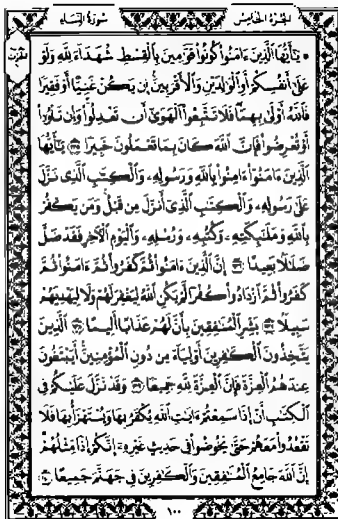 الجزء الخامس سورة النساء
۞ يَٰٓأَيُّهَا ٱلَّذِينَ ءَامَنُوا۟ كُونُوا۟ قَوَّٰمِينَ بِٱلْقِسْطِ شُهَدَآءَ لِلَّهِ وَلَوْ
عَلَىٰٓ أَنفُسِكُمْ أَوِ ٱلْوَٰلِدَيْنِ وَٱلْأَقْرَبِينَ إِن يَكُنْ غَنِيًّا أَوْ فَقِيرًا
فَٱللَّهُ أَوْلَىٰ بِهِمَا فَلَا تَتَّبِعُوا۟ ٱلْهَوَىٰٓ أَن تَعْدِلُوا۟ وَإِن تَلْوُۥٓا۟
أَوْ تُعْرِضُوا۟ فَإِنَّ ٱللَّهَ كَانَ بِمَا تَعْمَلُونَ خَبِيرًا ١٣٥ يَٰٓأَيُّهَا
ٱلَّذِينَ ءَامَنُوٓا۟ ءَامِنُوا۟ بِٱللَّهِ وَرَسُولِهِۦ وَٱلْكِتَٰبِ ٱلَّذِى نَزَّلَ
عَلَىٰ رَسُولِهِۦ وَٱلْكِتَٰبِ ٱلَّذِىٓ أَنزَلَ مِن قَبْلُ وَمَن يَكْفُرْ
بِٱللَّهِ وَمَلَٰٓئِكَتِهِۦ وَكُتُبِهِۦ وَرُسُلِهِۦ وَٱلْيَوْمِ ٱلْءَاخِرِ فَقَدْ ضَلَّ
ضَلَٰلًۢا بَعِيدًا ١٣٦ إِنَّ ٱلَّذِينَ ءَامَنُوا۟ ثُمَّ كَفَرُوا۟ ثُمَّ ءَامَنُوا۟ ثُمَّ
كَفَرُوا۟ ثُمَّ ٱزْدَادُوا۟ كُفْرًا لَّمْ يَكُنِ ٱللَّهُ لِيَغْفِرَ لَهُمْ وَلَا لِيَهْدِيَهُمْ
سَبِيلًۢا ١٣٧ بَشِّرِ ٱلْمُنَٰفِقِينَ بِأَنَّ لَهُمْ عَذَابًا أَلِيمًا ١٣٨ ٱلَّذِينَ
يَتَّخِذُونَ ٱلْكَٰفِرِينَ أَوْلِيَآءَ مِن دُونِ ٱلْمُؤْمِنِينَ أَيَبْتَغُونَ
عِندَهُمُ ٱلْعِزَّةَ فَإِنَّ ٱلْعِزَّةَ لِلَّهِ جَمِيعًا ١٣٩ وَقَدْ نَزَّلَ عَلَيْكُمْ فِى
ٱلْكِتَٰبِ أَنْ إِذَا سَمِعْتُمْ ءَايَٰتِ ٱللَّهِ يُكْفَرُ بِهَا وَيُسْتَهْزَأُ بِهَا فَلَا
تَقْعُدُوا۟ مَعَهُمْ حَتَّىٰ يَخُوضُوا۟ فِى حَدِيثٍ غَيْرِهِۦٓ إِنَّكُمْ إِذًا مِّثْلُهُمْ
إِنَّ ٱللَّهَ جَامِعُ ٱلْمُنَٰفِقِينَ وَٱلْكَٰفِرِينَ فِى جَهَنَّمَ جَمِيعًا ١٤٠
١٠٠